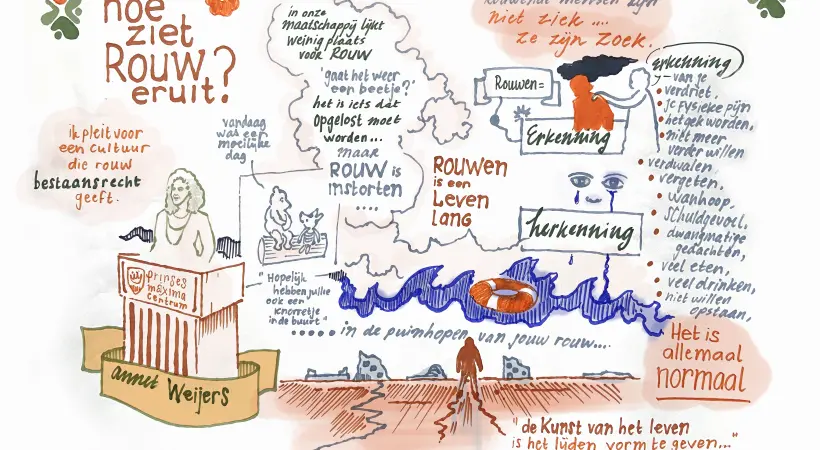 hoe
ziet
Rouw?
eruit!
ik pleit voor
een cultuur
die rouw
bestaansrecht
geeft.
prinses
máxima
centrum
annet Weijers
vandaag
was een
moeilijke
dag
"Hopelijk
hebben jullie
ook een
knorretje
in de buurt"
in onze
maatschappij lijkt
weinig plaats
voor ROUW
'gaat het weer
een beetje?'
het is iets dat
opgelost moet
worden...
maar
ROUW is
instorten
....
Rouwen
is een
Leven
lang
..... in de puinhopen van jouw rouw....
mensen zijn
niet ziek ....
ze zijn zoek.
Rouwen =
Erkenning
herkenning
erkenning
van je
verdriet,
je fysieke pijn
het gek worden,
niet meer
verder willen
verdwalen
vergeten,
wanhoop,
schuldgevoel,
dwangmatige
gedachten,
veel eten,
veel drinken,
niet willen
opstaan,
Het is
allemaal
normaal
"de Kunst van het leven
is het lijden vorm te geven..."